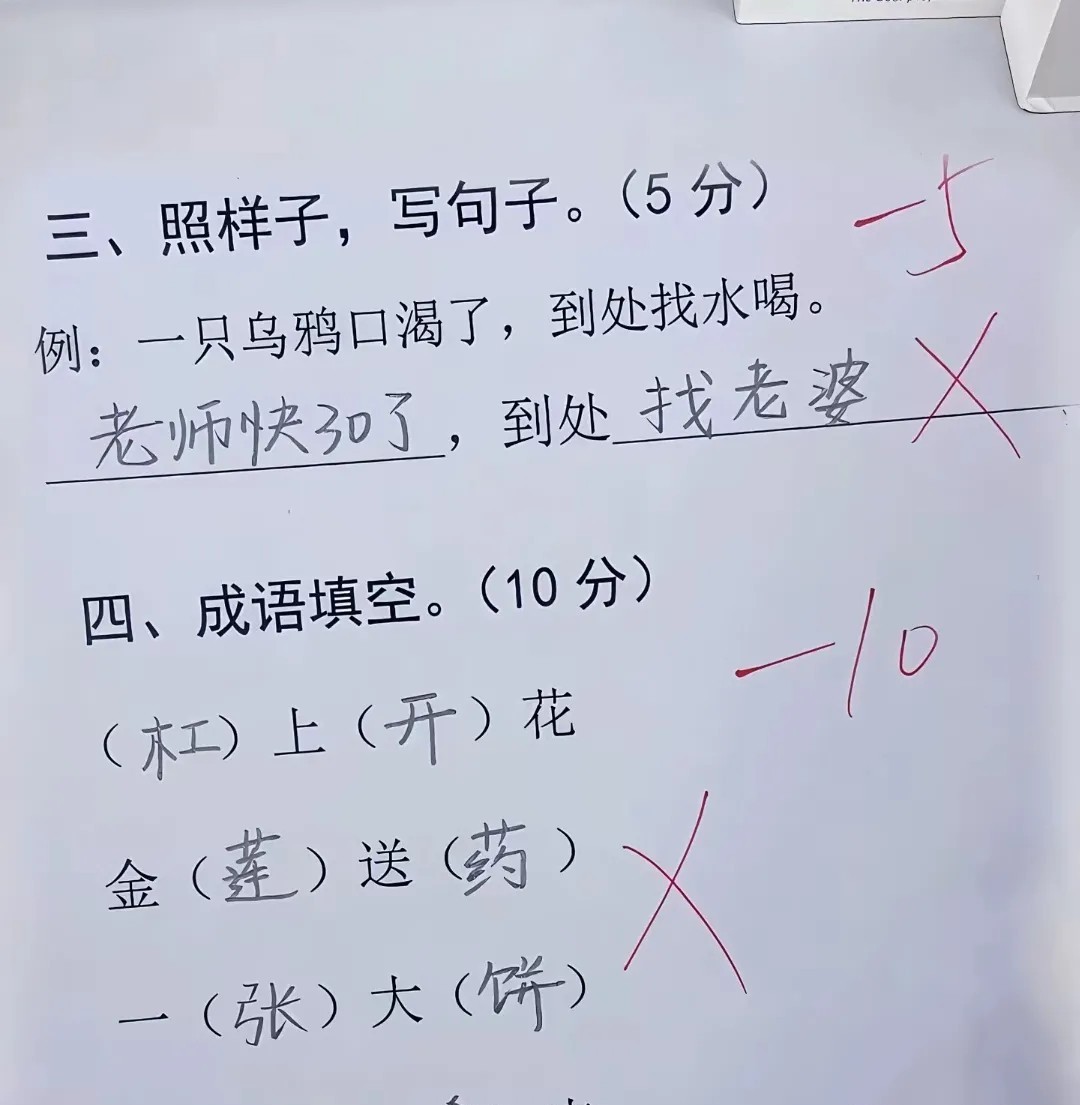 三、照样子，写句子。（5 分） -5
例：一只乌鸦口渴了，到处找水喝。
老师快30了，到处找老婆
四、成语填空。（10 分） -10
（杠）上（开）花
金（莲）送（药）
一（张）大（饼）